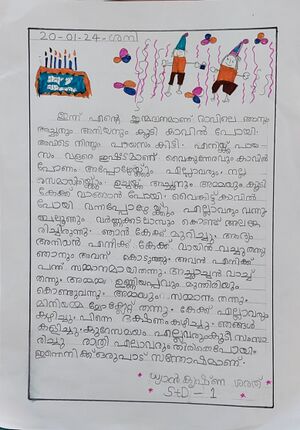 20-01-24-ശനി
ഇന്ന് എന്റെ ജന്മദിനമാണ് രാവിലെ ഞാനും
അച്ഛനും അനിയനും കൂടി കാവിൽ പോയി.
അവിടെ നിന്നും പായസം കിട്ടി. എനിയ്ക്ക് പായ
സം വളരെ ഇഷ്ടമാണ് വൈകുന്നേരവും കാവിൽ
പോണം. അപ്പോഴേയ്ക്കും എല്ലാവരും നല്ല
ഉച്ചയ്ക്ക് അച്ഛനും അമ്മയും കൂടി
കേക്ക് വാങ്ങാൻ പോയി. വൈകിട്ട് കാവിൽ
പോയി വന്നപ്പോഴേയ്ക്കും എല്ലാവരും വന്നു
ബലൂണും വർണ്ണക്കടലാസും കൊണ്ട് അലങ്ക
രിച്ചിരുന്നു. ഞാൻ കേക്ക് മുറിച്ചു. ആദ്യം
അനിയൻ എനിക്ക് കേക്ക് വായിൽ വച്ചു തന്നു
ഞാനും അവന് കൊടുത്തു. അവൻ എനിക്ക്
പണ്ട് സമ്മാനമായി തന്നു. അച്ചാച്ചൻ വാച്ച്
തന്നു. അമ്മമ്മ ഉണ്ണിയപ്പവും മുന്തിരിയും
കൊണ്ടുവന്നു. അമ്മയും സമ്മാനം തന്നു.
മിനിയമ്മ ചോക്ലേറ്റ് തന്നു. കേക്ക് എല്ലാവരും
കഴിച്ചു. പിന്നെ ഭക്ഷണം കഴിച്ചു. ഞങ്ങൾ
കളിച്ചു. കുറേസമയം എല്ലാവരുംകൂടി സംസാ
രിച്ചു രാത്രി എല്ലാവരും തിരിതെപോയി.
ഇന്നെനിക്ക് ഒരുപാട് സന്തോഷമാണ്.
ധ്യാൻ കൃഷ്ണ ശരത്
STD - 1